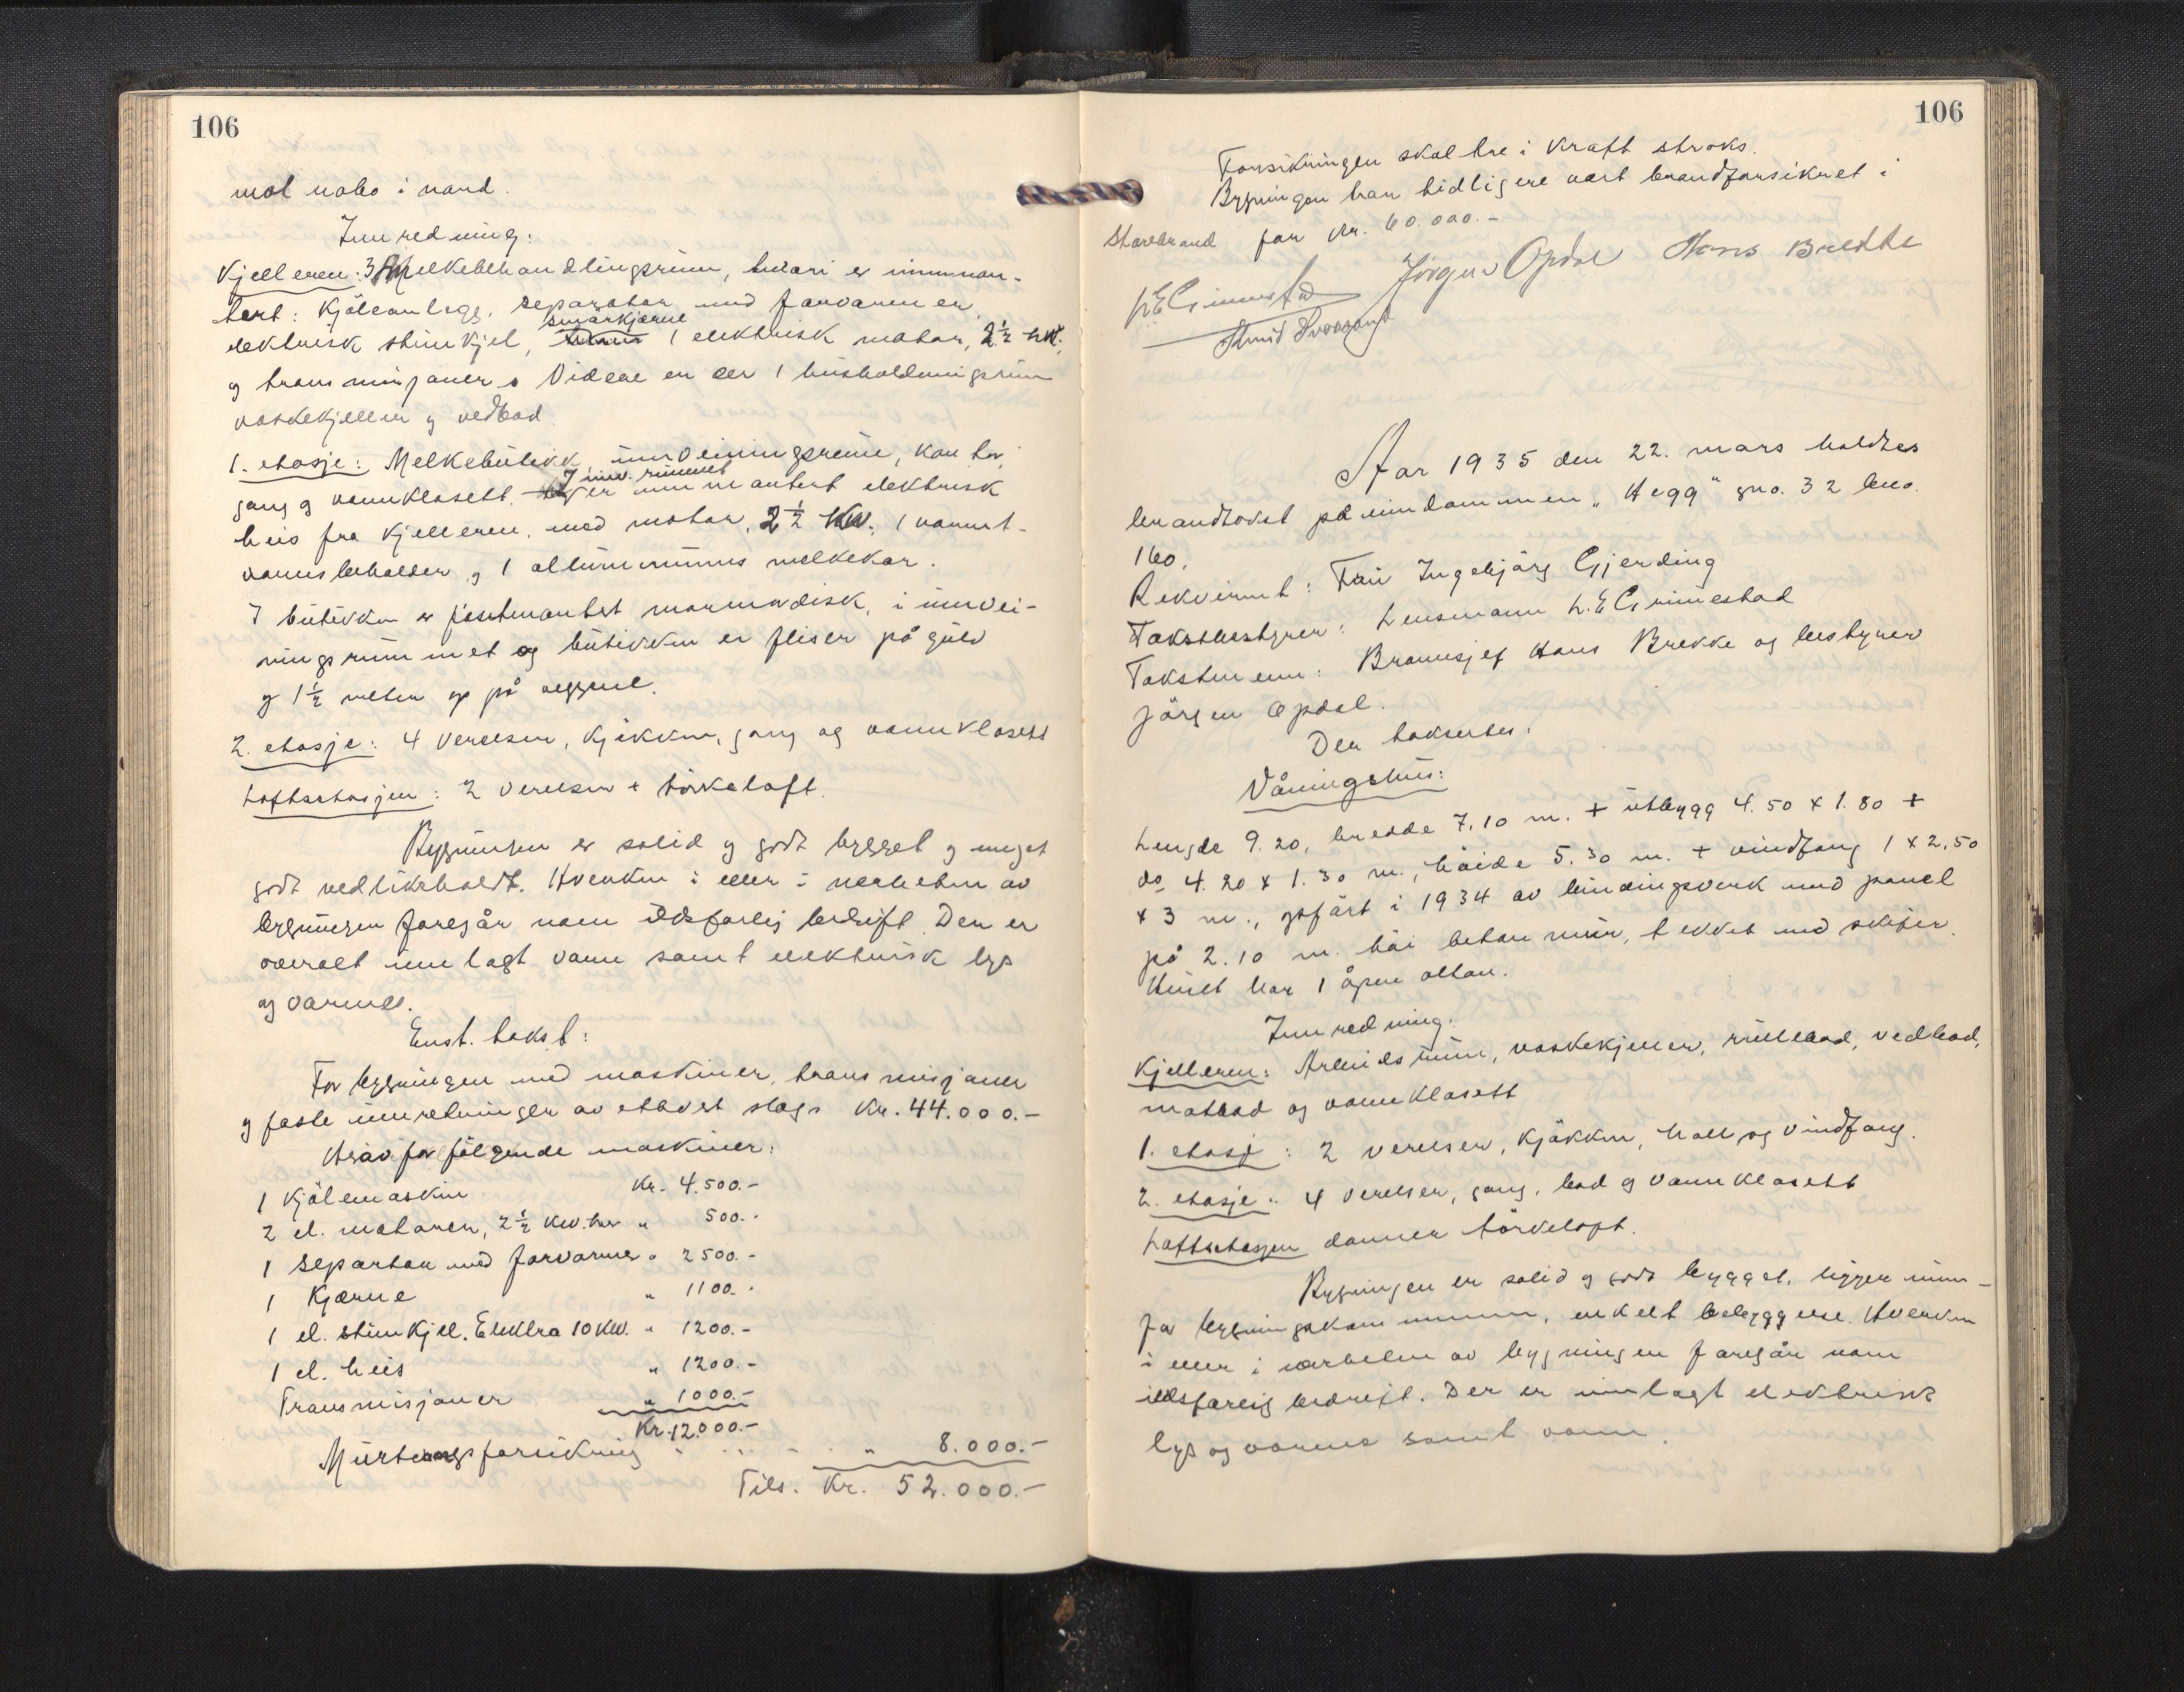 106
mot nabo i nord.
Innredning:
Kjelleren: 3 Melkebehandlingsrum, hvari er innmon-
tert: Kjöleanlegg, separator med forvarmer,
elektrisk stimkjel, smörkjerne 1 elektrisk motor, 2½ kw.
og transmisjoner. Videre er der 1 husholdningsrum
vaskekjeller og vedbod.
1. etasje: Melkebutikk, innveiningsrum, kontor,
gang og vannklosett. I inv. rummet er innmontert elektrisk
heis fra kjelleren med motor, 2½ kw. 1 varmt-
vannsbeholder og 1 alluminiums melkekar.
I butikken er fastmontert marmordisk, i innvei-
ningsrummet og butikken er fliser på gulv
og 1½ meter op på veggene.
2. etasje: 4 verelser, kjökken, gang og vannklosett
Loftsetasjen: 2 verelser + törkeloft.
Bygningen er solid og godt bygget og meget
godt vedlikeholdt. Hverken i eller i nerheten av
bygningen foregår noen ildsfarlig bedrift. Der er
overalt innlagt vann samt elektrisk lys
og varme.
Enst. takst:
For bygningen med maskiner, transmisjoner
og faste innretninger av ethvert slags Kr. 44.000.-
Herav for fölgende maskiner:
1 Kjölemaskin Kr. 4.500.-
2 el. motorer, 2½ kw. hver " 500.-
1 Separator med forvarmer " 2500.-
1 Kjerne " 1100.-
1 el. stimkjel. Elektra 10 KW. " 1200.-
1 el. heis " 1200.-
Transmisjoner " 1000.-
Kr. 12.000.-
Murtvangsforsikring " 8.000.-
Tils. Kr. 52.000.-
106
Forsikringen skal tre i kraft straks.
Bygningen har tidligere vært brandforsikret i
Storebrand for Kr. 60.000.-
L. E. Grimestad Jörgen Opdal Hans Brekke
Knud
Aar 1935 den 22. mars holdtes
brandtakst på eiendommen "Hegg" gno. 32 bno.
160.
Rekvirent: Fru Ingebjörg Gjerding
Takstbestyrer: Lensmann L. E. Grimestad
Takstmenn: Brannsjef Hans Brekke og bestyrer
Jörgen Opdal.
Der takseres:
Våningshus:
Lengde 9.20, bredde 7.10 m. + utbygg 4.50 x 1.80 +
do 4.20 x 1.30 m., höide 5.30 m. + vindfang 1 x 2,50
x 3 m., opfört i 1934 av bindingsverk med panel
på 2.10 m. höi betonmur, tekket med skifer.
Huset har 1 åpen altan.
Innredning:
Kjelleren: Arbeidsrum, vaskekjeller, rullebod, vedbod,
matbod og vannklosett
1. etasje: 2 verelser, kjökken, hall og vindfang.
2. etasje: 4 verelser, gang, bad og vannklosett
Loftsetasjen danner törkeloft.
Bygningen er solid og godt bygget, ligger innen-
for bygningskommunen, enkelt bebyggelse. Hverken
i eller i nærheten av bygningen foregår noen
ildsfarlig bedrift. Der er innlagt elektrisk
lys og varme samt vann.